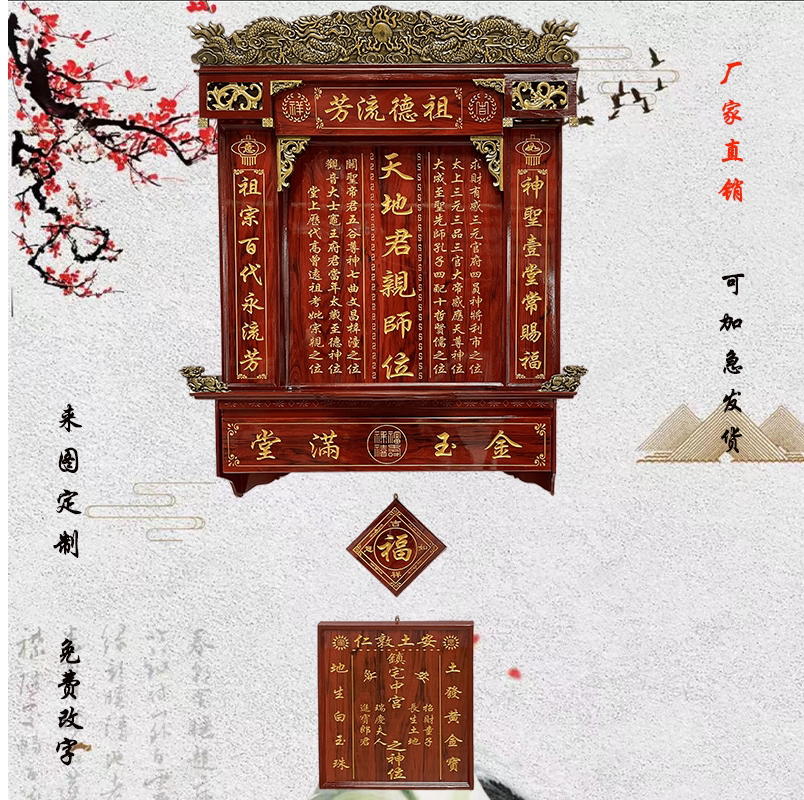 厂家直销
可加急发货
来图定制
免费改字
祖德流芳
祥
如
意
神聖壹堂常賜福
求財有感三元官府四員神將利市之位
太上三元三品三官大帝感應天尊神位
大成至聖先師孔子四配十哲賢儒之位
天地君親師位
關聖帝君五谷尊神七曲文昌梓潼之位
觀音大士竈王府君當年太歲至德神位
堂上歷代高曾遠祖考妣宗親之位
祖宗百代永流芳
金玉滿堂
吉
福
祥
安土敦仁
土發黃金寶
招財童子
長生土地
鎮宅中宮
之神位
瑞慶夫人
進寶郎君
地生白玉珠